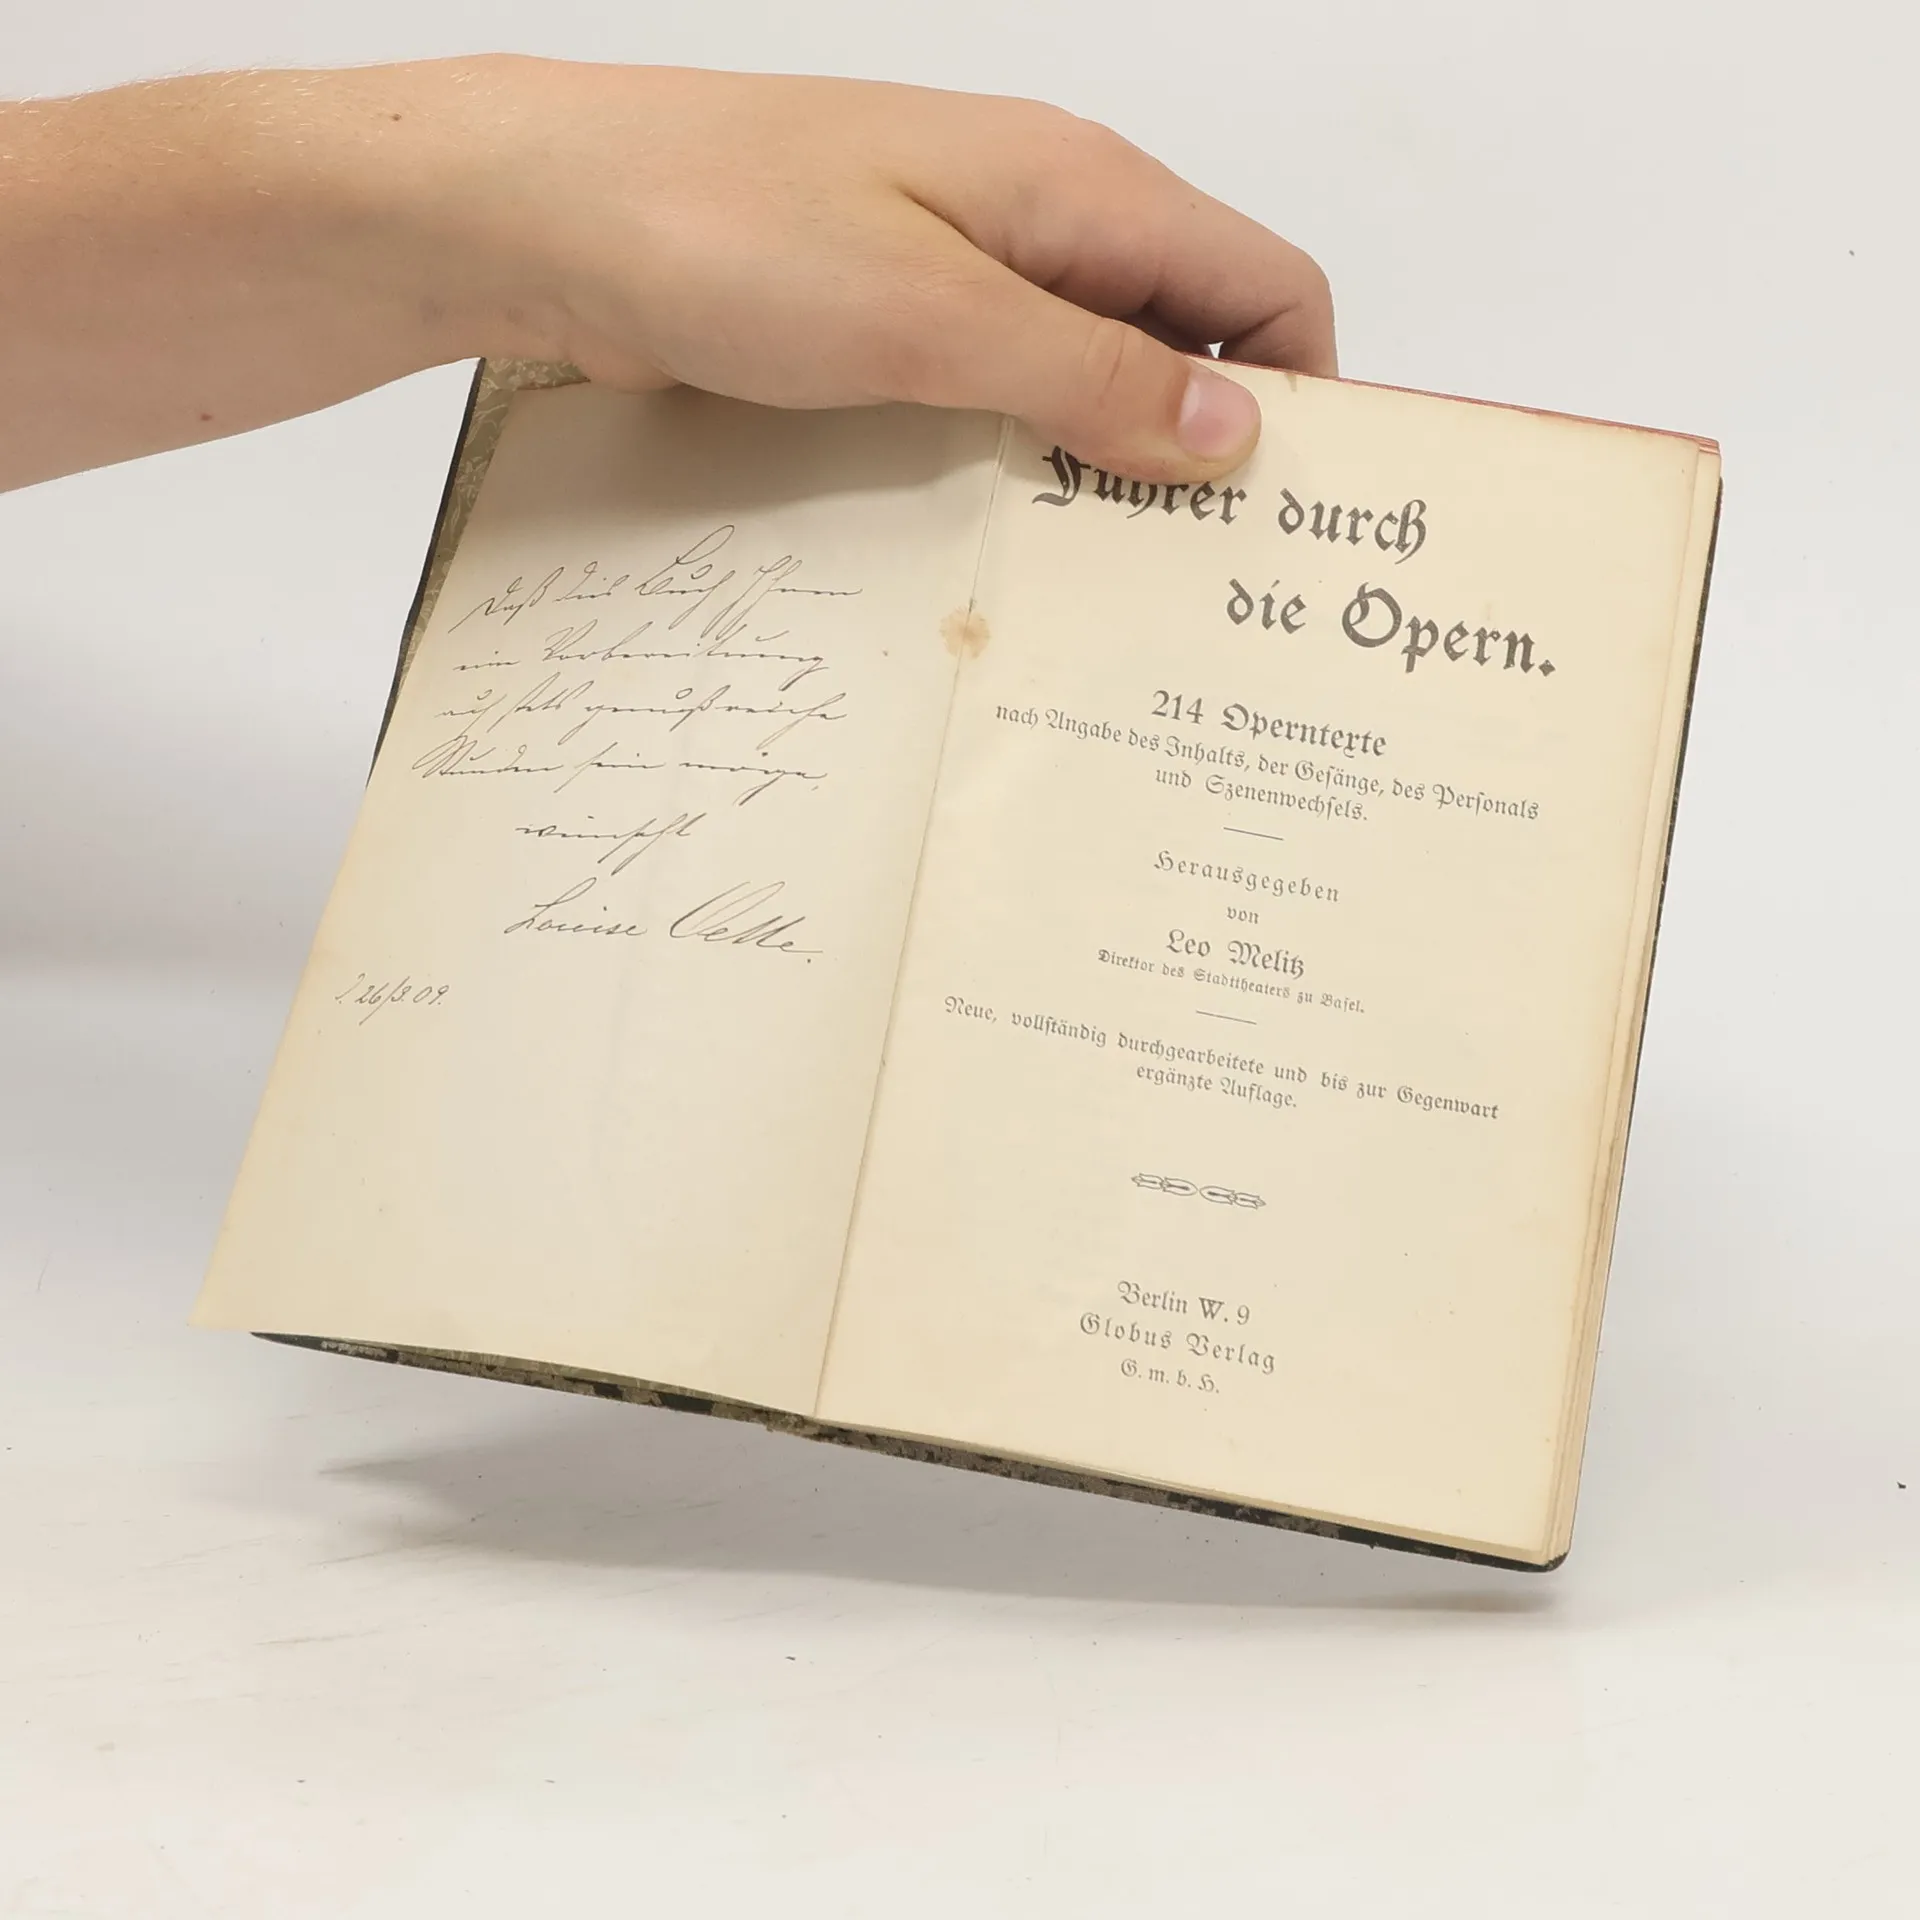 Daß dies Buch Ihnen
eine Vorbereitung
auf stets genußreiche
Stunden sein möge,
wünscht
Louise Oette.
26/3.09.
Führer durch
die Opern.
214 Operntexte
nach Angabe des Inhalts, der Gesänge, des Personals
und Szenenwechsels.
Herausgegeben
von
Leo Melitz
Direktor des Stadttheaters zu Basel.
Neue, vollständig durchgearbeitete und bis zur Gegenwart
ergänzte Auflage.
Berlin W. 9
Globus Verlag
G. m. b. H.